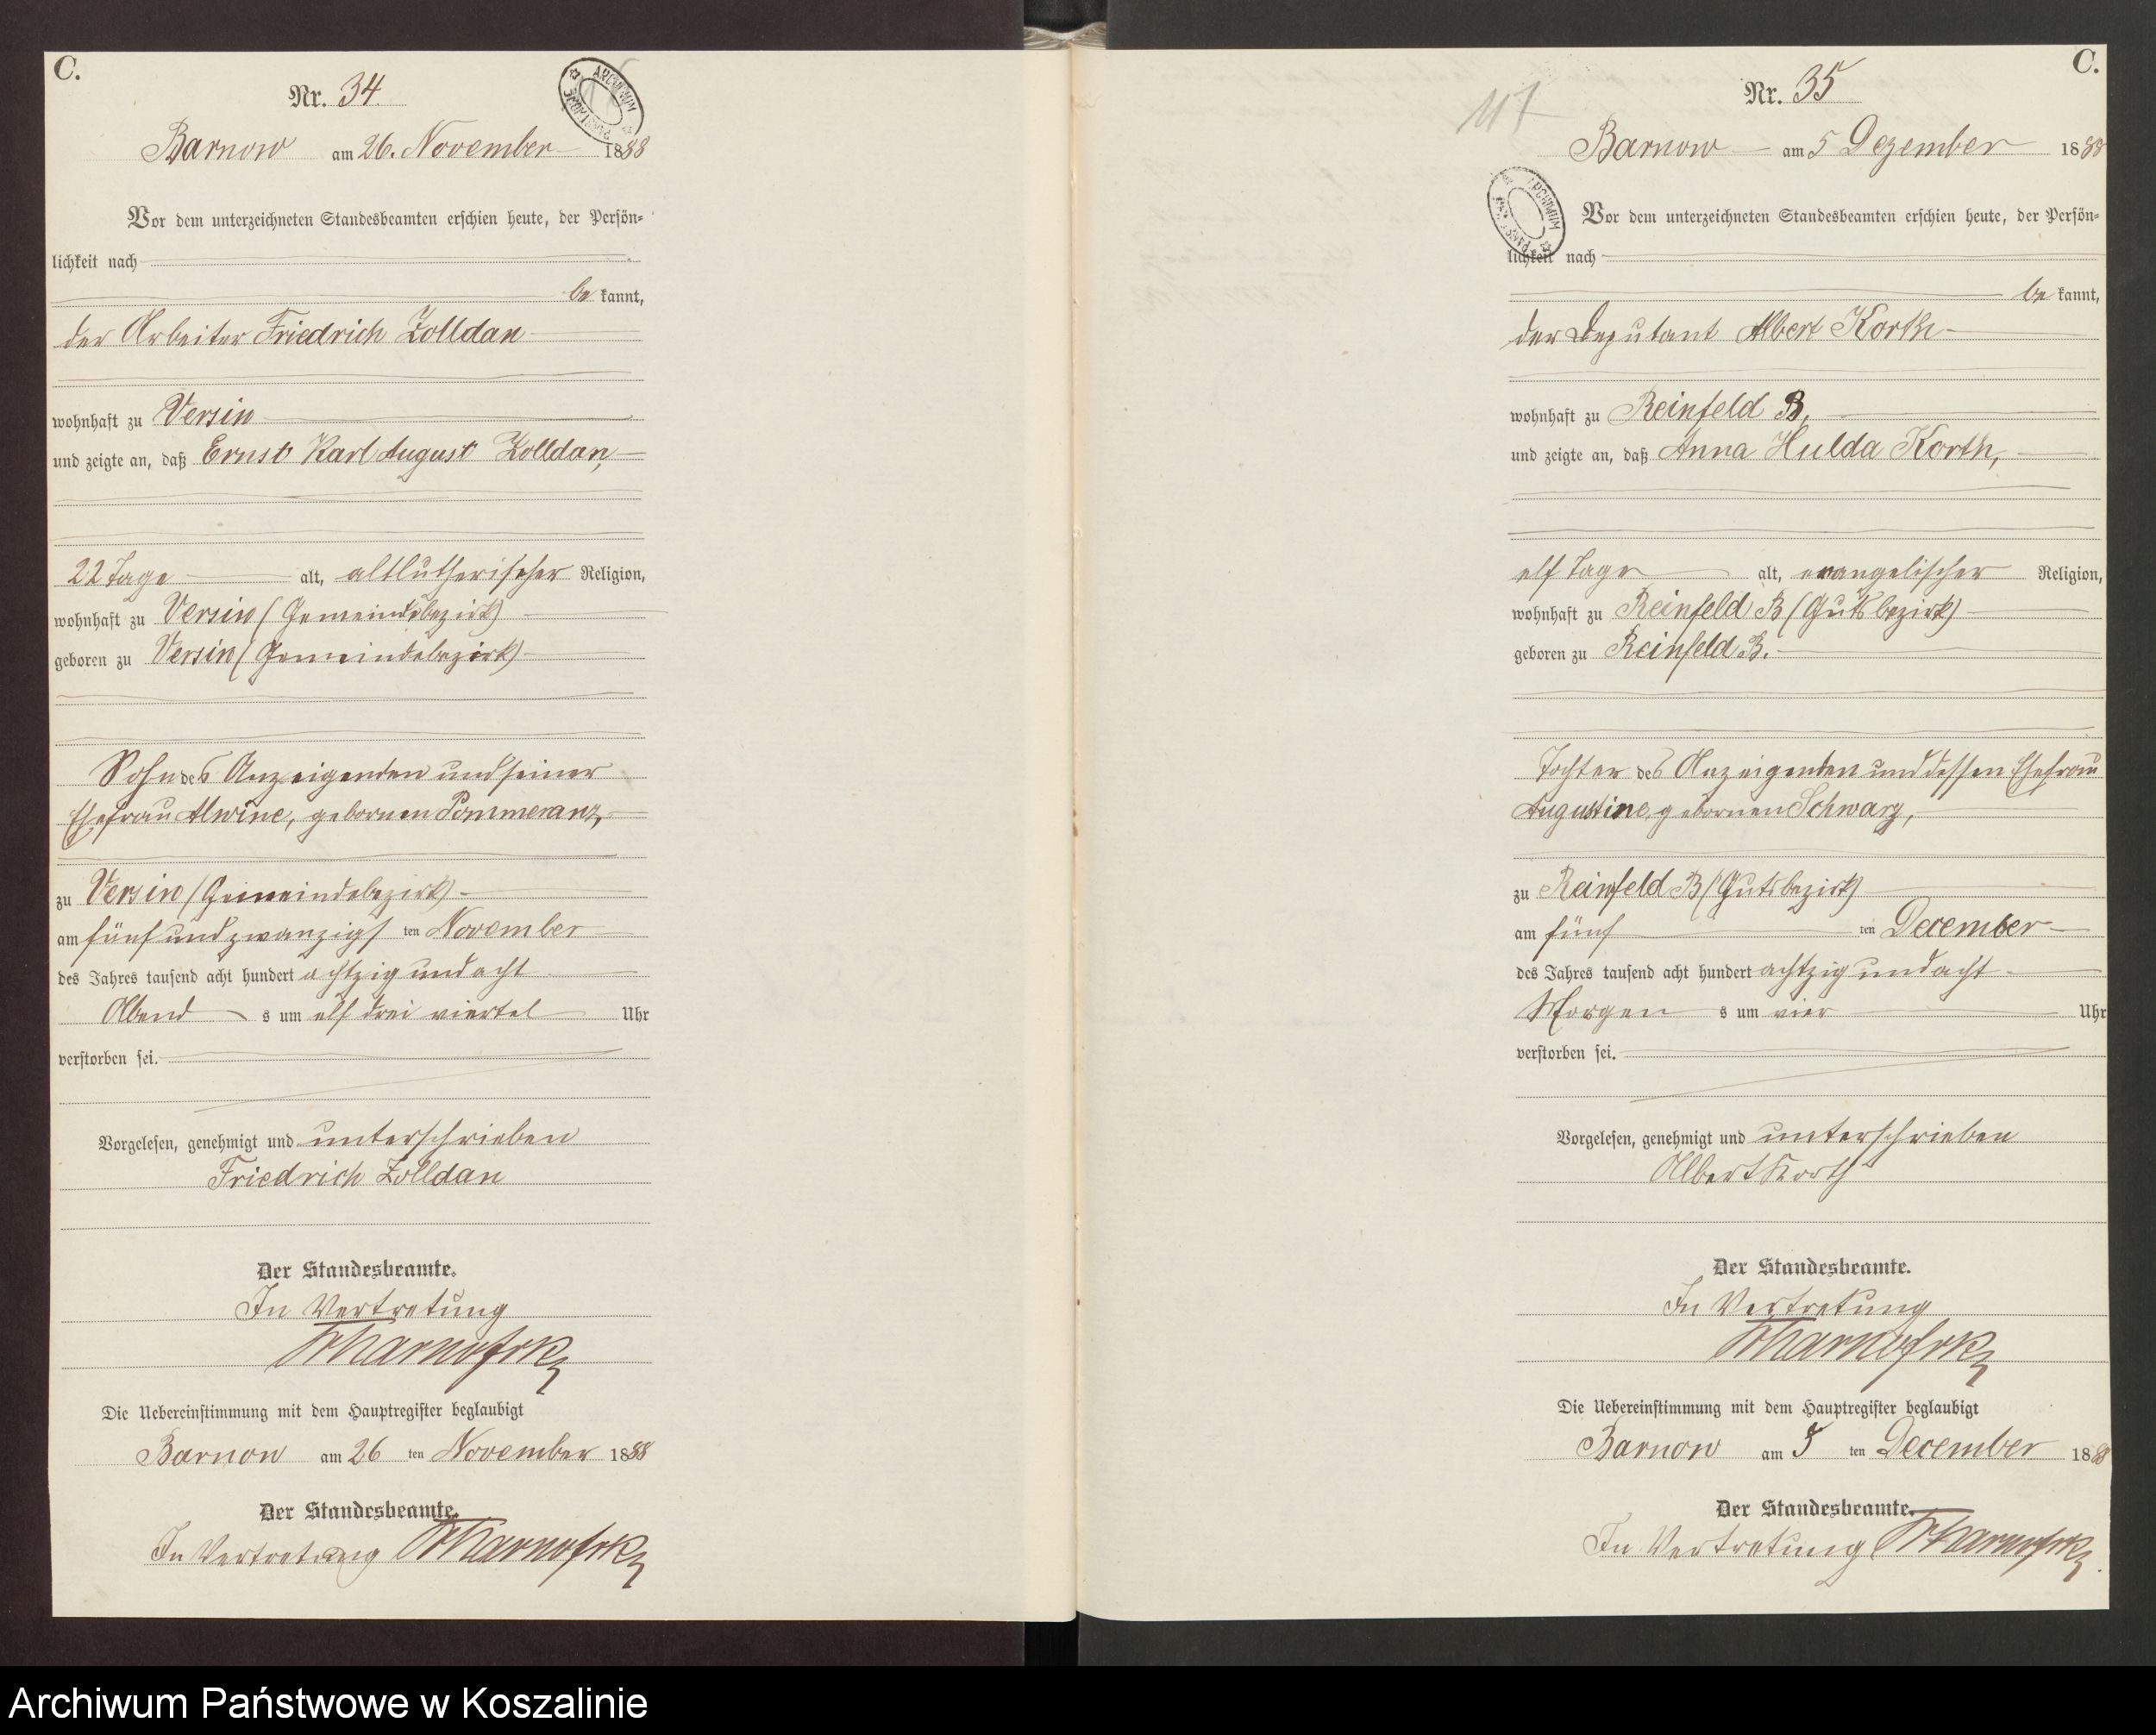 C.
Nr. 34
Barnow am 26. November 1888
Vor dem unterzeichneten Standesbeamten erschien heute, der Persön=
lichkeit nach
be kannt,
der Arbeiter Friedrich Zolldan
wohnhaft zu Versin
und zeigte an, daß Ernst Karl August Zolldan,
22 Tage alt, altlutherischer Religion,
wohnhaft zu Versin (Gemeindebezirk)
geboren zu Versin (Gemeindebezirk)
Sohn des Anzeigenden und seiner
Ehefrau Alwine, gebornen Pommeranz,
zu Versin (Gemeindebezirk)
am fünf und zwanzigs ten November
des Jahres tausend acht hundert achtzig und acht
Abend s um elf drei viertel Uhr
verstorben sei.
Vorgelesen, genehmigt und unterschrieben
Friedrich Zolldan
Der Standesbeamte.
In Vertretung
Die Uebereinstimmung mit dem Hauptregister beglaubigt
Barnow am 26 ten November 1888
Der Standesbeamte.
In Vertretung
C.
Nr. 35
117
Barnow am 5 Dezember 1888
Vor dem unterzeichneten Standesbeamten erschien heute, der Persön=
lichkeit nach
be kannt,
der Deputant Albert Korth
wohnhaft zu Reinfeld B,
und zeigte an, daß Anna Hulda Korth,
elf Tage alt, evangelischer Religion,
wohnhaft zu Reinfeld B (Gutsbezirk)
geboren zu Reinfeld B.
Tochter des Anzeigenden und dessen Ehefrau
Augustine, gebornen Schwarz,
zu Reinfeld B (Gutsbezirk)
am fünf ten December
des Jahres tausend acht hundert achtzig und acht
Morgen s um vier Uhr
verstorben sei.
Vorgelesen, genehmigt und unterschrieben
Albert Korth
Der Standesbeamte.
In Vertretung
Die Uebereinstimmung mit dem Hauptregister beglaubigt
Barnow am 5 ten December 1888
Der Standesbeamte.
In Vertretung
Archiwum Państwowe w Koszalinie